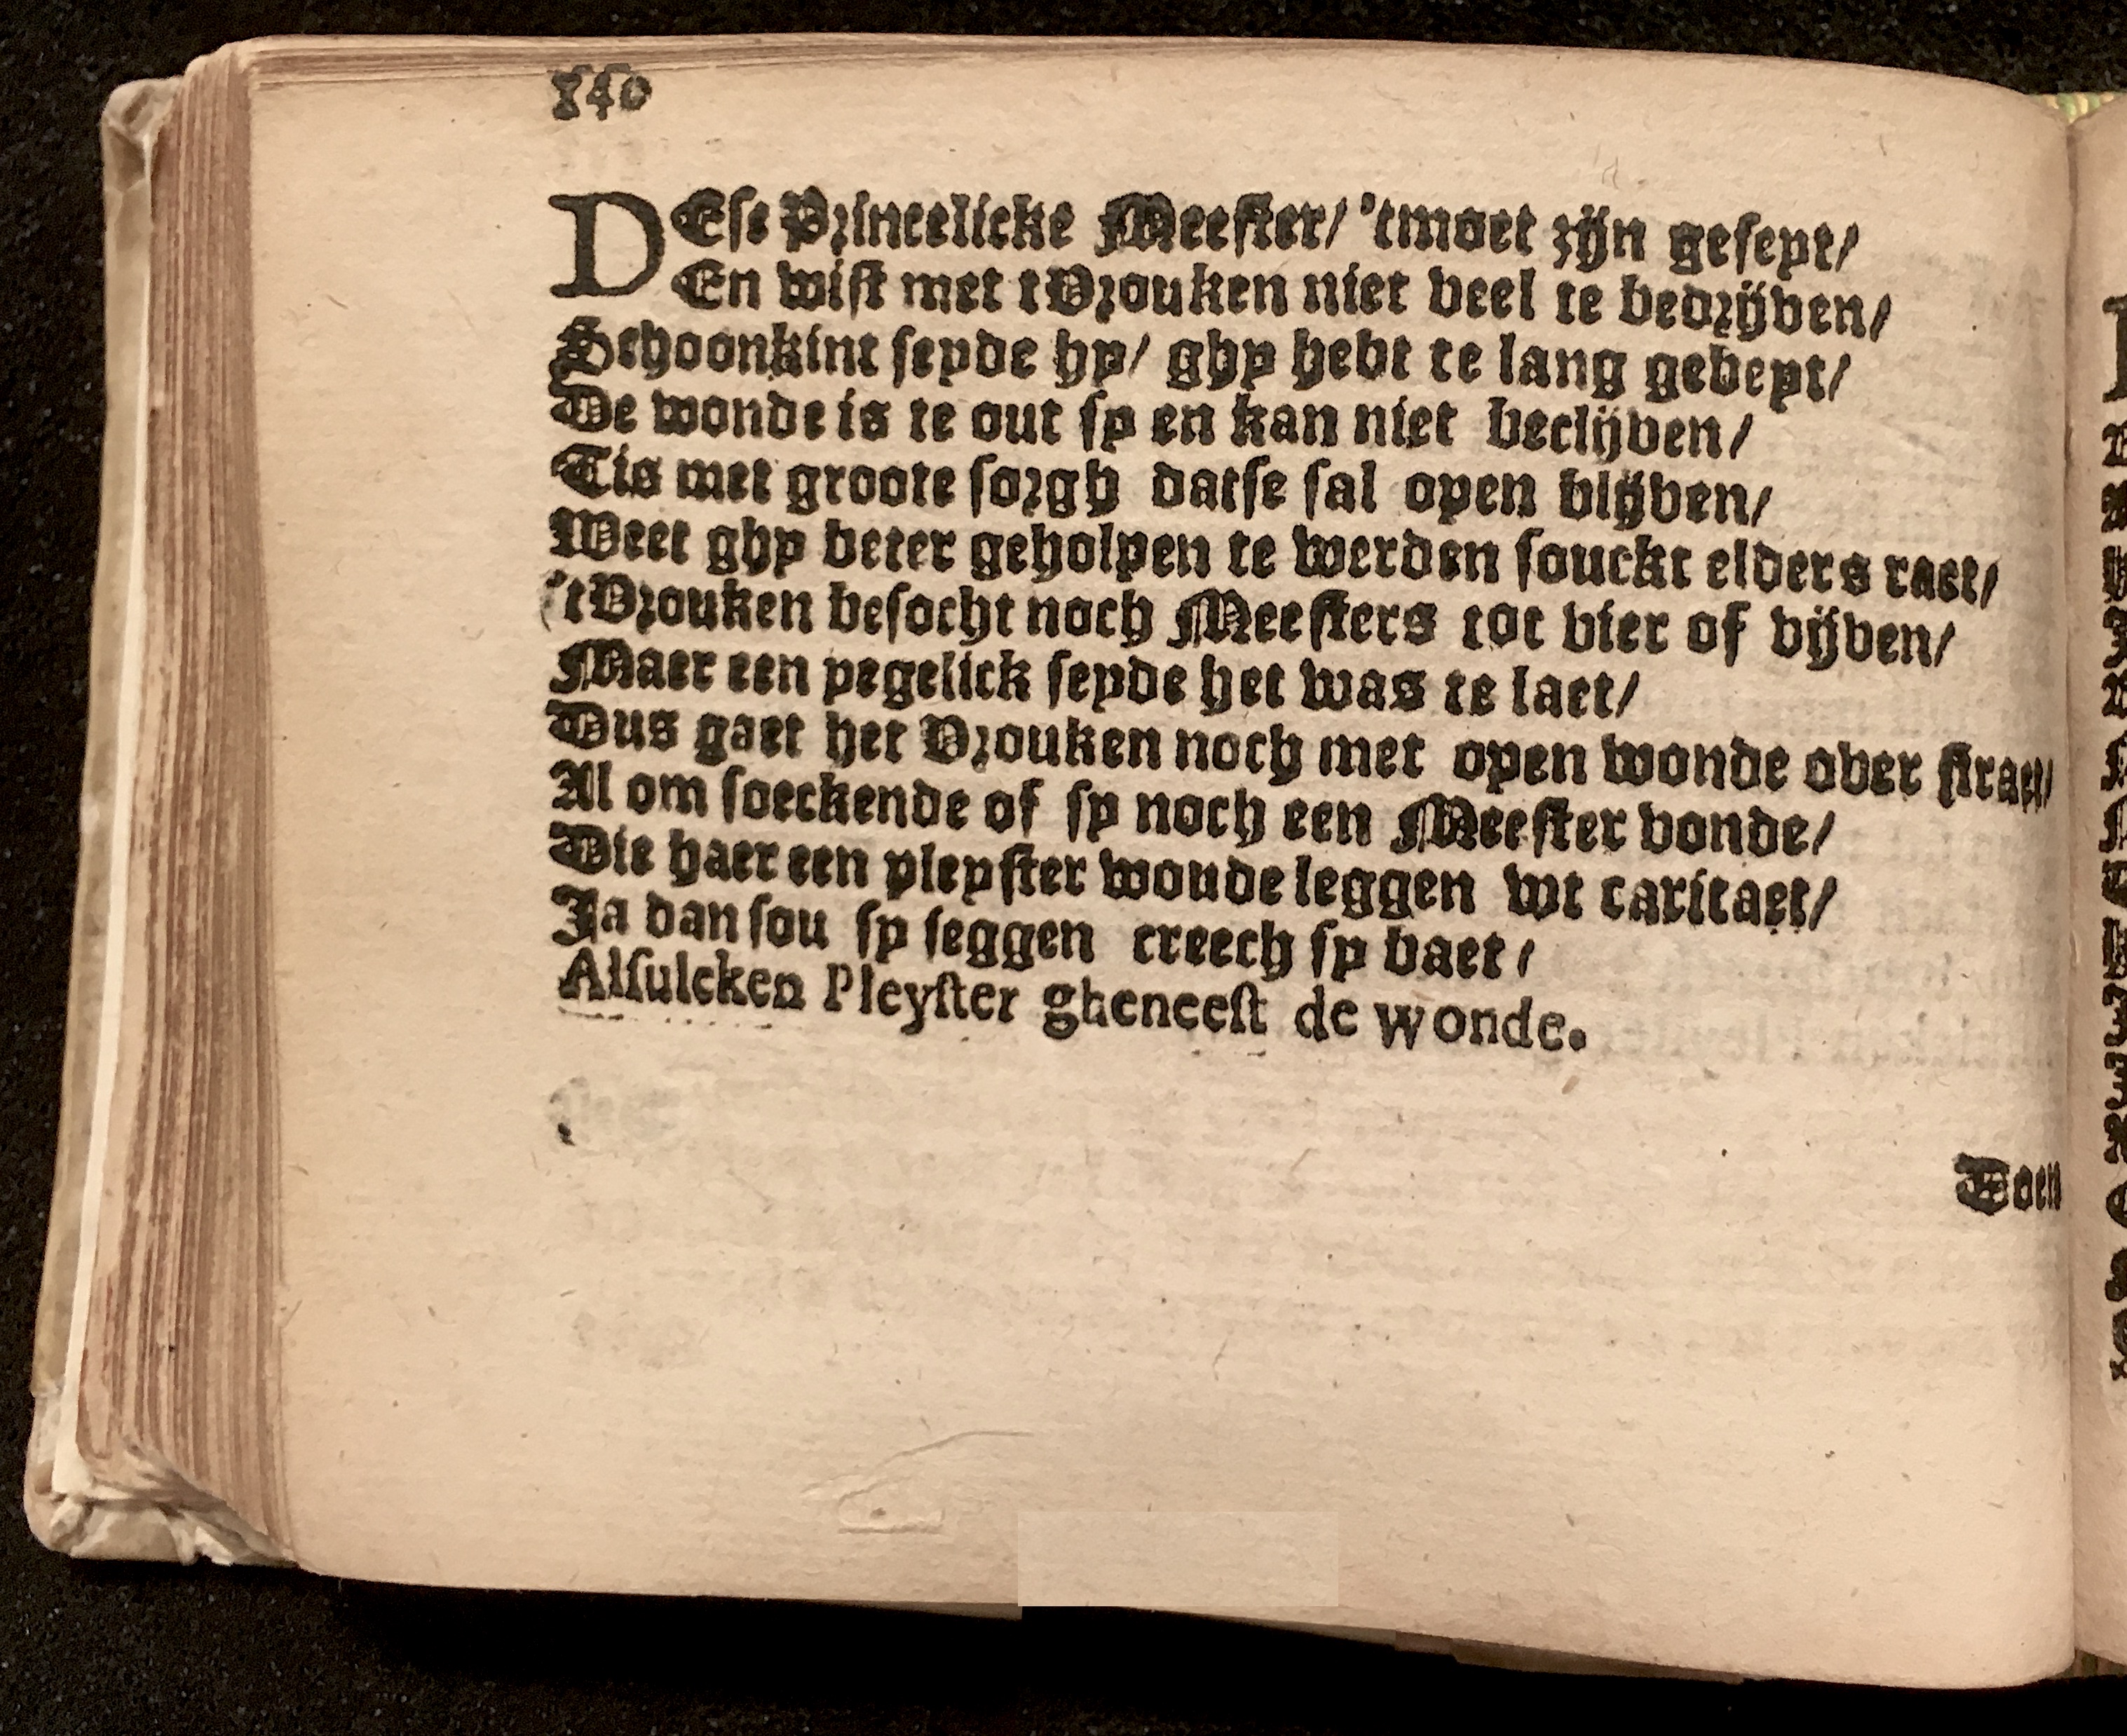 840
DEse Princelicke Meester/ 'tmoet zijn geseyt/
En wist met tVrouken niet veel te bedrijven/
Schoonkint seyde hy/ ghy hebt te lang gebeyt/
De wonde is te out sy en kan niet beclijven/
Tis met groote sorgh datse sal open blijven/
Weet ghy beter geholpen te werden souckt elders raet/
'tVrouken besocht noch Meesters tot vier of vijven/
Maer een yegelick seyde het was te laet/
Dus gaet het Vrouken noch met open wonde over straet/
Al om soeckende of sy noch een Meester vonde/
Die haer een pleyster woude leggen wt caritaet/
Ja dan sou sy seggen creech sy baet/
Alsulcken Pleyster gheneest de wonde.
Doen